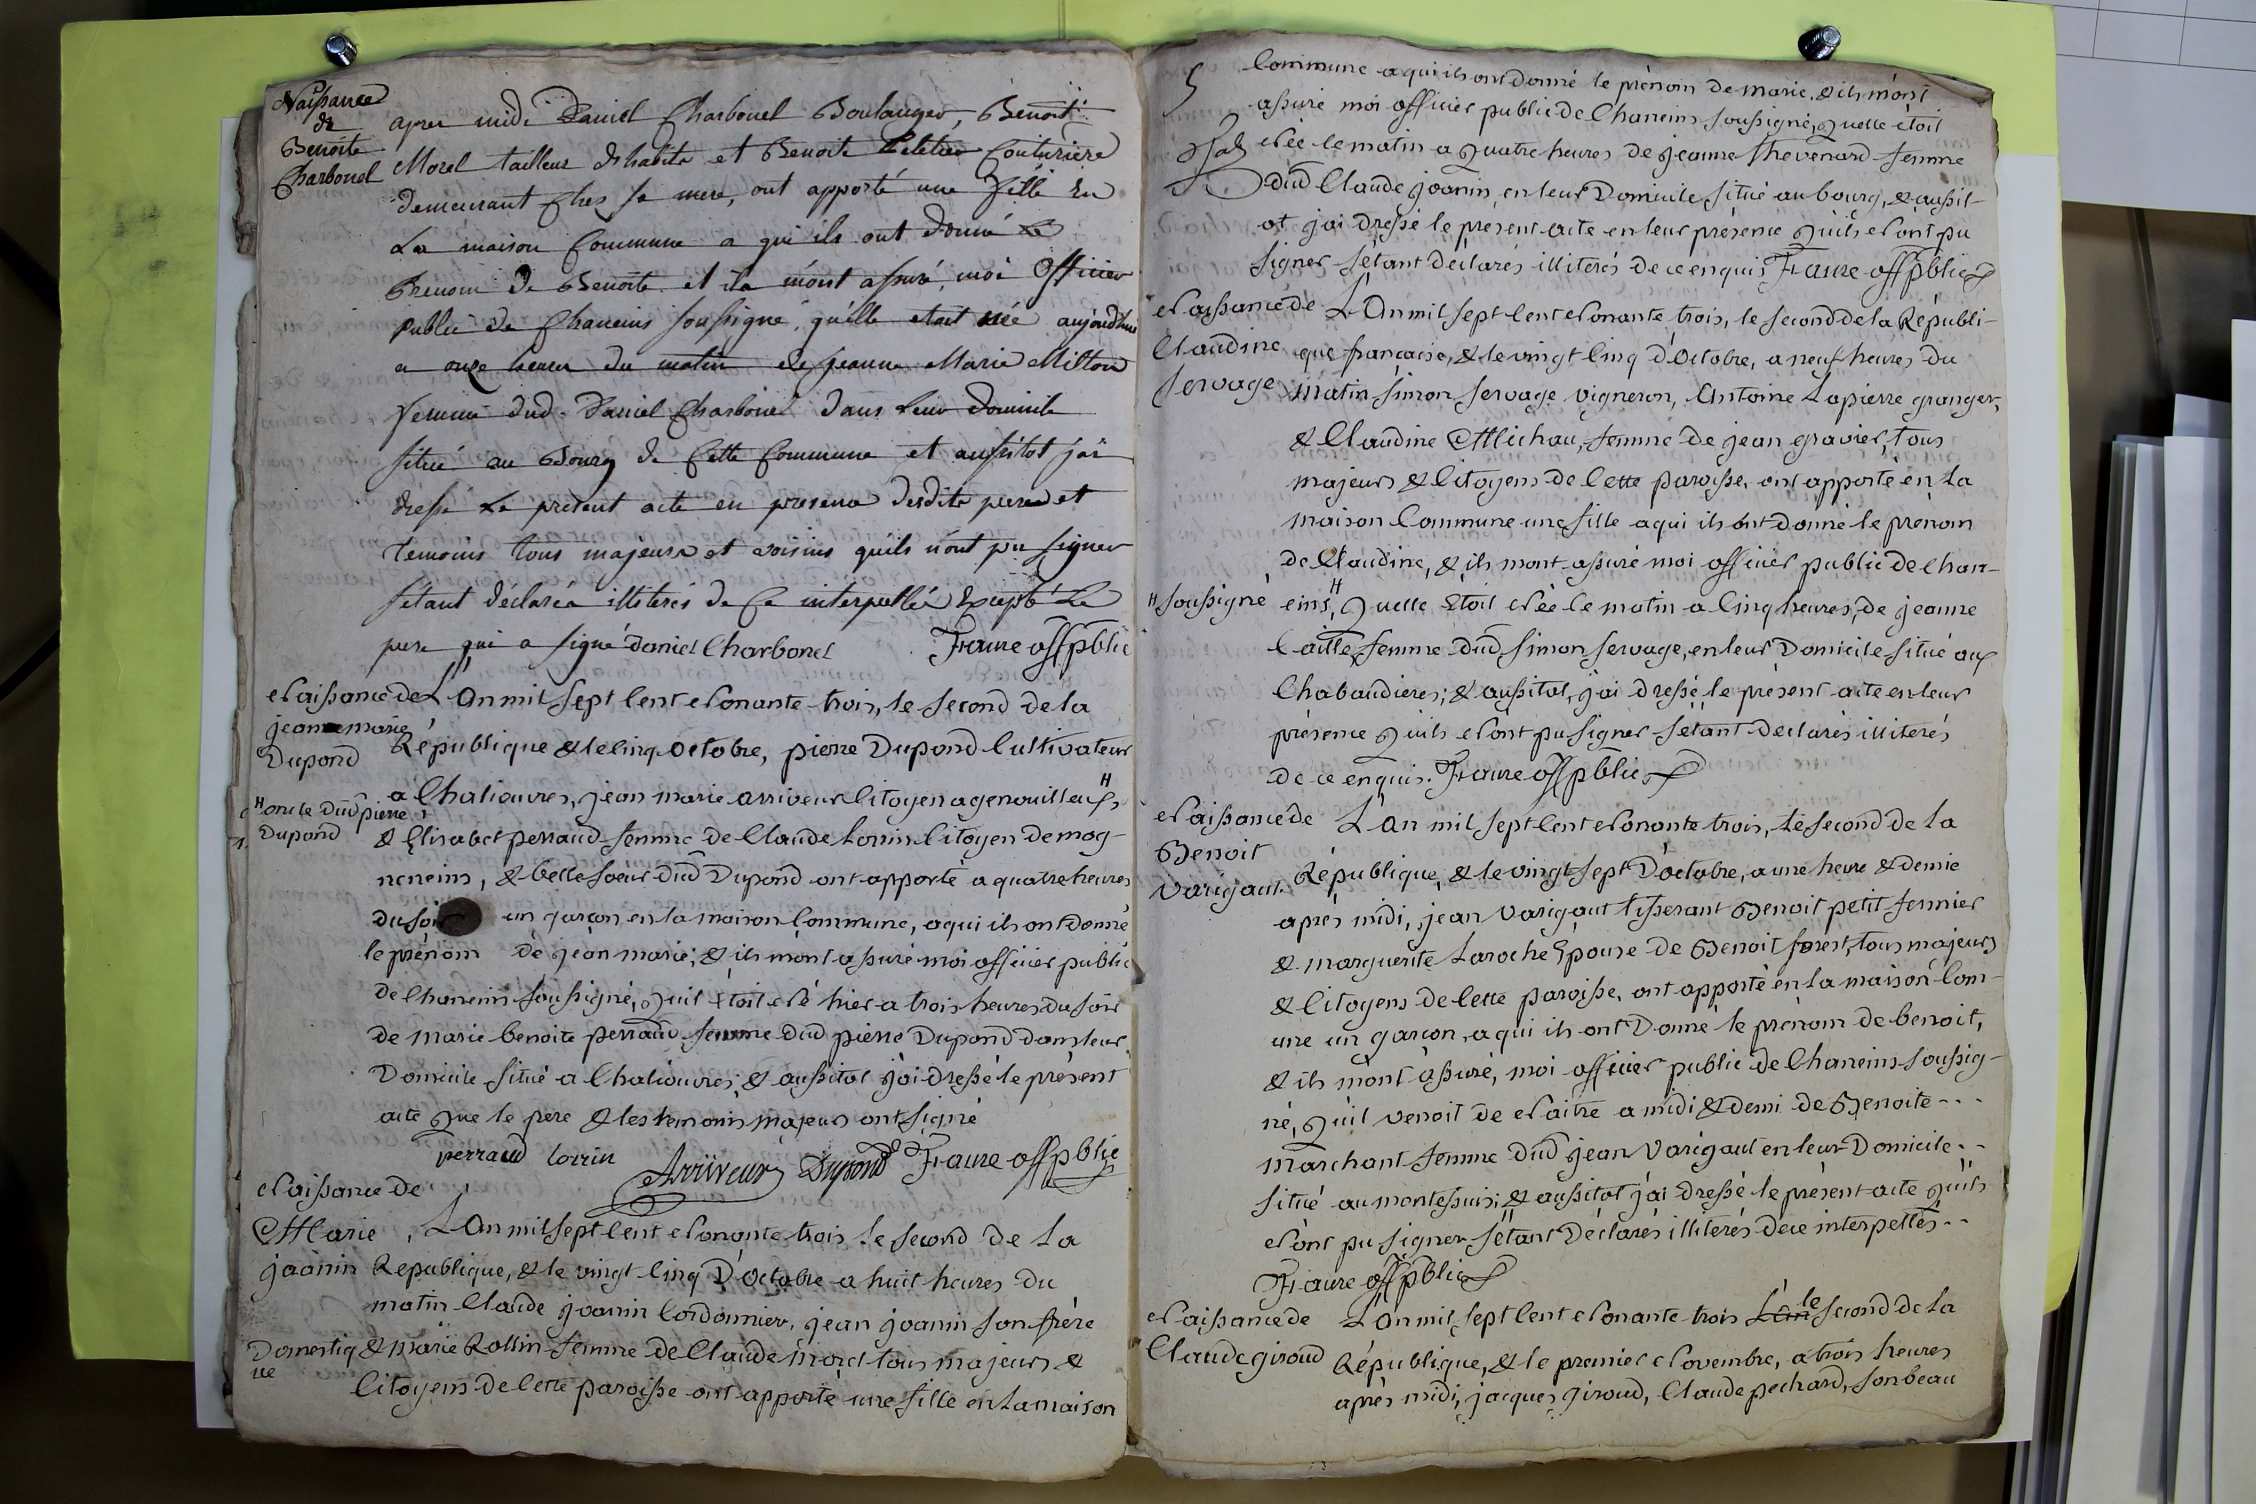 Naissance
de
Benoite
Charbonel
apres midi Daniel Charbonel Boulanger, Benoit
Morel tailleur dhabits et Benoite Couturiere
demeurant Ches sa mere, ont apporté une fille en
La maison Commune a qui ils ont donné Le
Prenom de Benoite et ils m'ont assuré, moi Officier
public de Chaneins soussigné, qu'elle etait née aujourdhui
a onze heures du matin de Jeanne Marie Milton
femme dud. Daniel Charbonel dans Leur domicile
situé au Bourg de Cette Commune et aussitot j'ai
dressé Le présent acte en presence desdits pere et
temoins tous majeurs et voisins qu'ils n'ont pu signer
s'étant déclarés illiterés de Ce interpellés Excepté Le
pere qui a signé Daniel Charbonel Faure off pblic
Naissance de
jean marie
Dupond
L'An mil sept Cent Nonante trois, le second de la
République & le Cinq octobre, pierre Dupond Cultivateur
a Chaliouvres, jean marie arriveur Citoyen agenouilleux H,
H oncle dud pierre
Dupond
& Elisabet perraud femme de Claude Lorrin Citoyen de mog-
neneins, & belle soeur dud Dupond ont apporté a quatre heures
du soir un garçon en la maison Commune, a qui ils ont Donné
le prénom de jean marie; & ils m'ont assuré moi officier public
de Chaneins soussigné, Quil Etoit Né hier a trois heures du soir
de Marie benoite perraud femme dud pierre Dupond dans leur
Domicile situé a Chaliouvres; & aussitot j'ai dressé le présent
acte Que le pere & les temoins majeurs ont signé
perraud lorrin Arriveur Dupond Faure off pblic
Naissance de
Marie
joanin
L'An mil sept Cent Nonante trois le second de La
République, & le vingt Cinq D'Octobre a huit heures du
matin Claude joanin Cordonnier, jean joanin son frère
Domestiq
ue
& marie Rollin femme de Claude morel tous majeurs &
Citoyens de Cette paroisse ont apporté une fille en La maison
5
Commune a qui ils ont donné le prénom de marie, & ils m'ont
assuré moi officier public de Chaneins soussigné, Quelle étoit
Née le matin a Quatre heures de jeanne thevenard femme
dud Claude joanin, en leur Domicile situé au bourg, & aussit-
ot jai Dressé le présent acte en leur présence Quils Nont pu
signer s'étant déclarés illiterés de ce enquis Faure off pblic
Naissance de
Claudine
servage
L'An mil sept Cent Nonante trois, le second de la Républi-
que française, & le vingt Cinq d'Octobre, a neuf heures du
matin simon servage vigneron, Antoine Lapierre granger,
& Claudine Michau, femme de jean gravier, tous
majeurs & Citoyens de Cette paroisse, ont apporté en La
maison Commune une fille a qui ils ont donné le prénom
de Claudine, & ils mont assuré moi officier public de Chan-
H soussigné
eins, H Quelle Etoit Née le matin a Cinq heures, de jeanne
Caille, femme dud simon servage, en leur Domicile situé aux
Chabaudieres; & aussitot, j'ai dressé le présent acte en leur
présence Quils Nont pu signer s'étant déclarés illiterés
de ce enquis. Faure off pblic
Naissance de
Benoit
Varigaut
L'An mil sept Cent Nonante trois, Le second de la
République, & le vingt sept D'octobre, a une heure & demie
après midi, jean Varigaut tisserant Benoit petit fermier
& marguerite Laroche Epouse de Benoit forest, tous majeurs
& Citoyens de Cette paroisse, ont apporté en La maison Com-
une un garçon, a qui ils ont Donné le prénom de benoit,
& ils m'ont assuré, moi officier public de Chaneins soussig-
né, Qu'il venoit de Naitre a midi & demi de Benoite - - -
marchant femme dud jean Varigaut en leur Domicile - -
situé au montessuis; & aussitot j'ai dressé le présent acte Quils
Nont pu signer s'étant Déclarés illiterés de ce interpellés - -
Faure off pblic
Naissance de
Claude giroud
L'An mil sept Cent Nonante trois L'an le second de la
République, & le premier Novembre, a trois heures
après midi, jacques giroud, Claude pechard, son beau